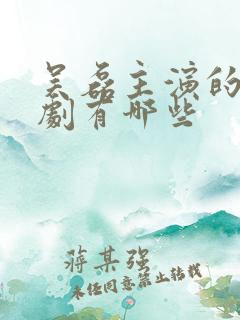 吴磊主演的
劇有哪些
蔣某强
未经同意禁止转载